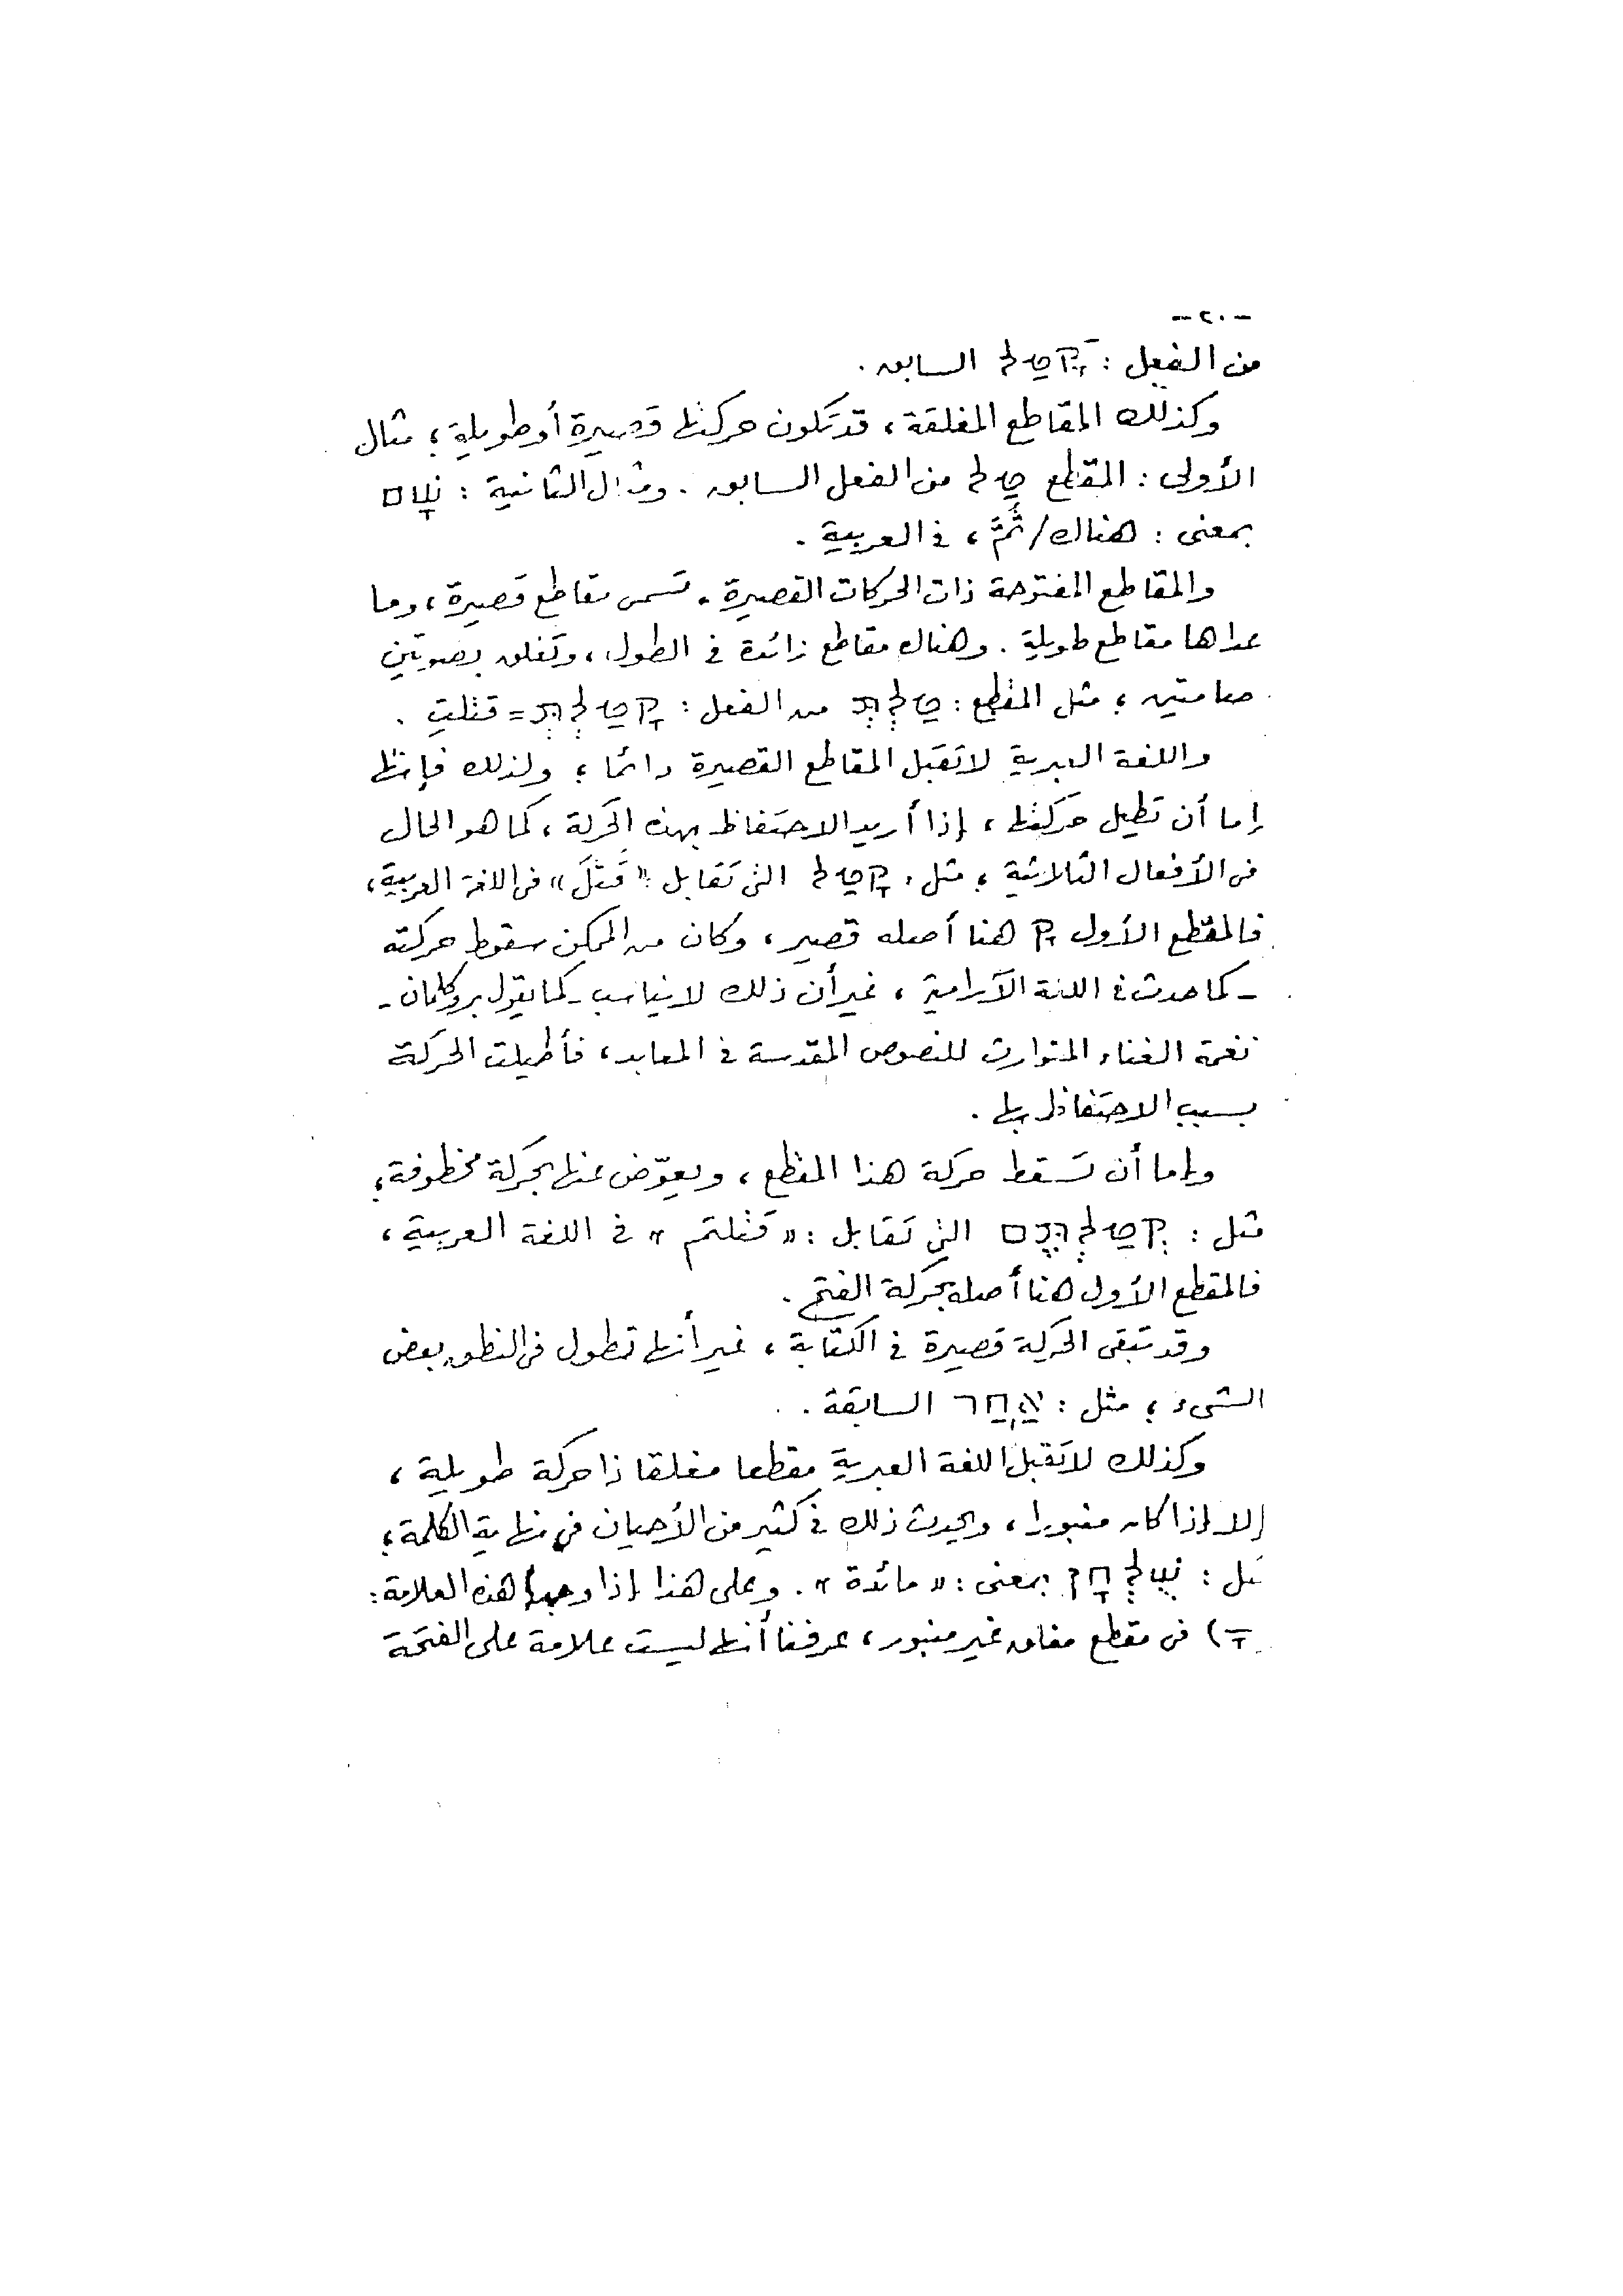 -٢٠-
من الفعل : קָטַל السابق .
وكذلك المقاطع المغلقة ، قد تكون حركتها قصيرة أو طويلة ؛ مثال
الأولى : المقطع טַל من الفعل السابق . ومثال الثانية : שָׁם
بمعنى : هناك / ثَمَّ ، في العربية .
والمقاطع المفتوحة ذات الحركات القصيرة . تسمى مقاطع قصيرة ، وما
عداها مقاطع طويلة . وهناك مقاطع زائدة في الطول ، وتغلق بصوتين
صامتين ؛ مثل المقطع : טַלְתְּ من الفعل : קָטַלְתְּ = قتلتِ .
واللغة العبرية لا تقبل المقاطع القصيرة دائما ؛ ولذلك فإنها
إما أن تطيل حركتها ، إذا أريد الاحتفاظ بهذه الحركة ، كما هو الحال
في الأفعال الثلاثية ؛ مثل : קָטַל التي تقابل : « قَتَلَ » في اللغة العربية ،
فالمقطع الأول קָ هنا أصله قصير ، وكان من الممكن سقوط حركته
- كما حدث في اللغة الآرامية ، غير أن ذلك لا يناسب - كما يقول بروكلمان -
نغمة الغناء المتوارث للنصوص المقدسة في المعابد ، فأطيلت الحركة
بسبب الاحتفاظ بها .
وإما أن تسقط حركة هذا المقطع ، ويعوّض عنها بحركة مخطوفة ؛
مثل : קְטַלְתֶּם التي تقابل : « قتلتم » في اللغة العربية ،
فالمقطع الأول هنا أصله بحركة الفتح .
وقد تبقى الحركة قصيرة في الكتابة ، غير أنها تطول في النطق بعض
الشيء ؛ مثل : אַחַר السابقة .
وكذلك لا تقبل اللغة العبرية مقطعا مغلقا ذا حركة طويلة ،
إلا إذا كان منبورا ، ويحدث ذلك في كثير من الأحيان في نهاية الكلمة ؛
مثل : שֻׁלְחָן بمعنى : « مائدة » . وعلى هذا إذا وجدنا هذه العلامة :
( ָ ) في مقطع مغلق غير منبور ، عرفنا أنها ليست علامة على الفتحة